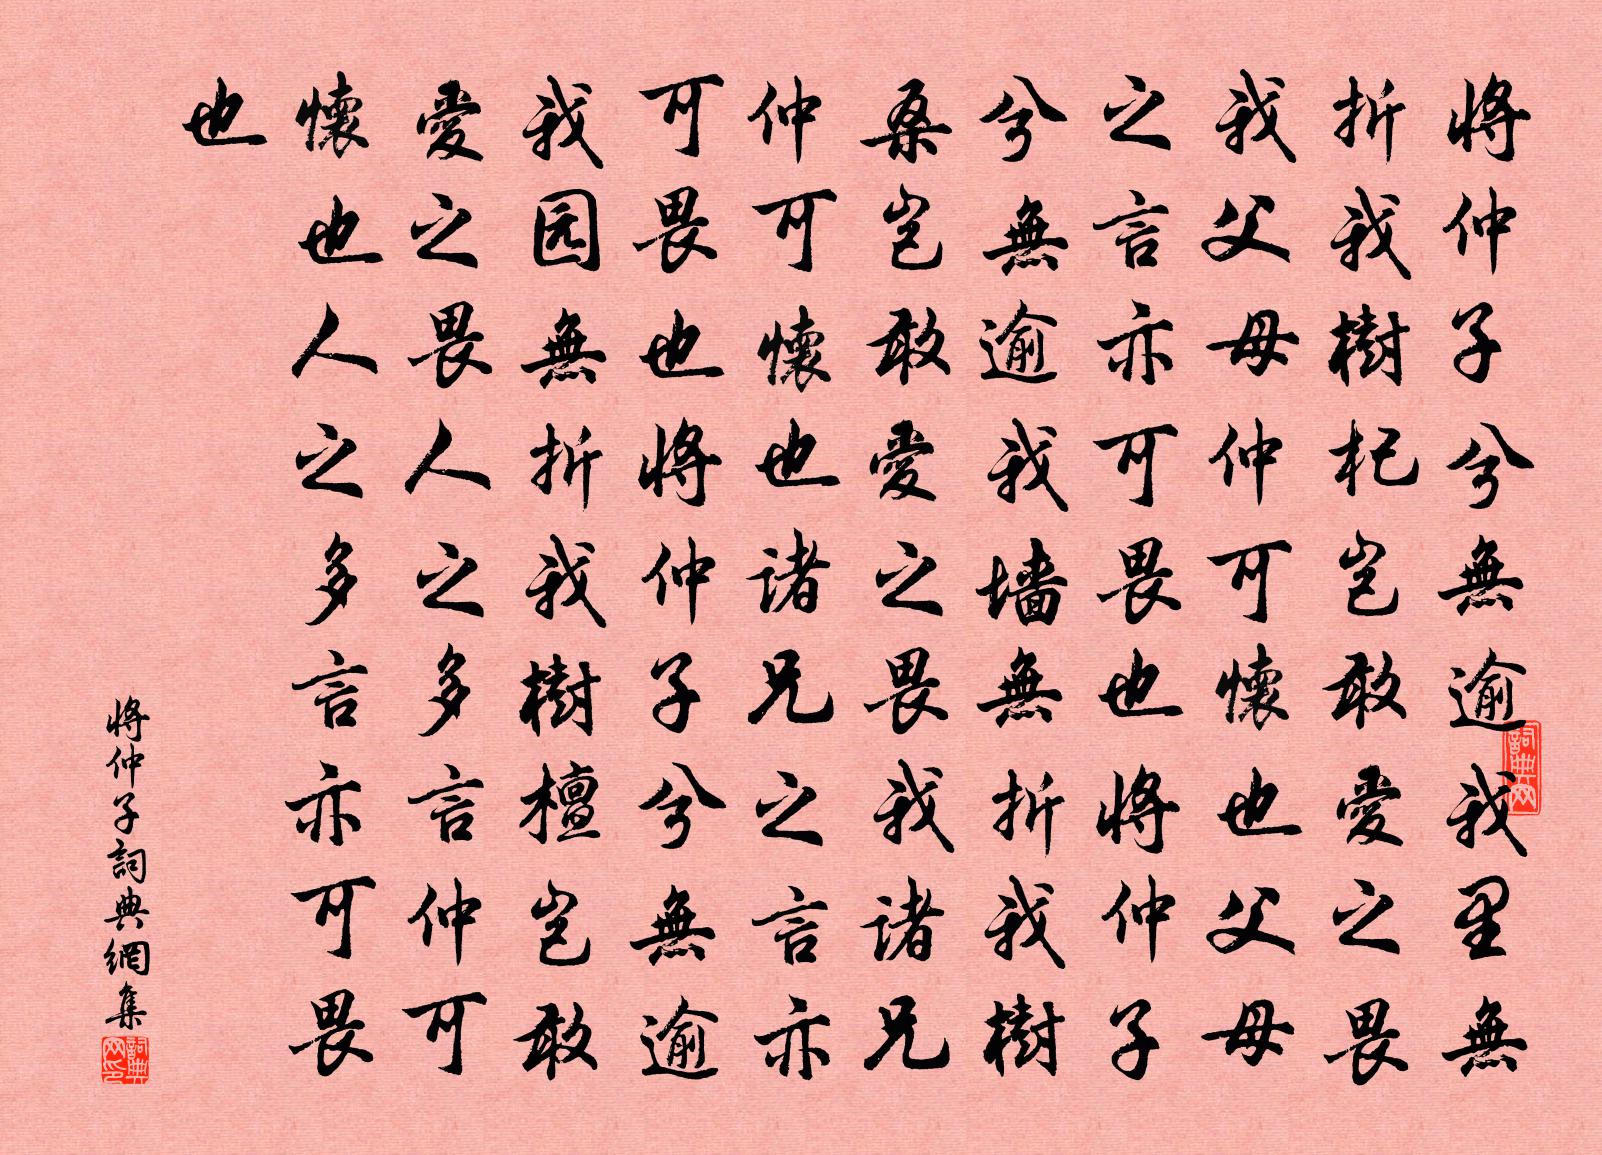 將仲子兮無逾我里無
折我樹杞豈敢愛之畏
我父母仲可懷也父母
之言亦可畏也將仲子
兮無逾我墙無折我樹
桑豈敢愛之畏我諸兄
仲可懷也諸兄之言亦
可畏也將仲子兮無逾
我园無折我樹檀豈敢
愛之畏人之多言仲可
懷也人之多言亦可畏
也
將仲子詞典網集
詞典网
詞典网印